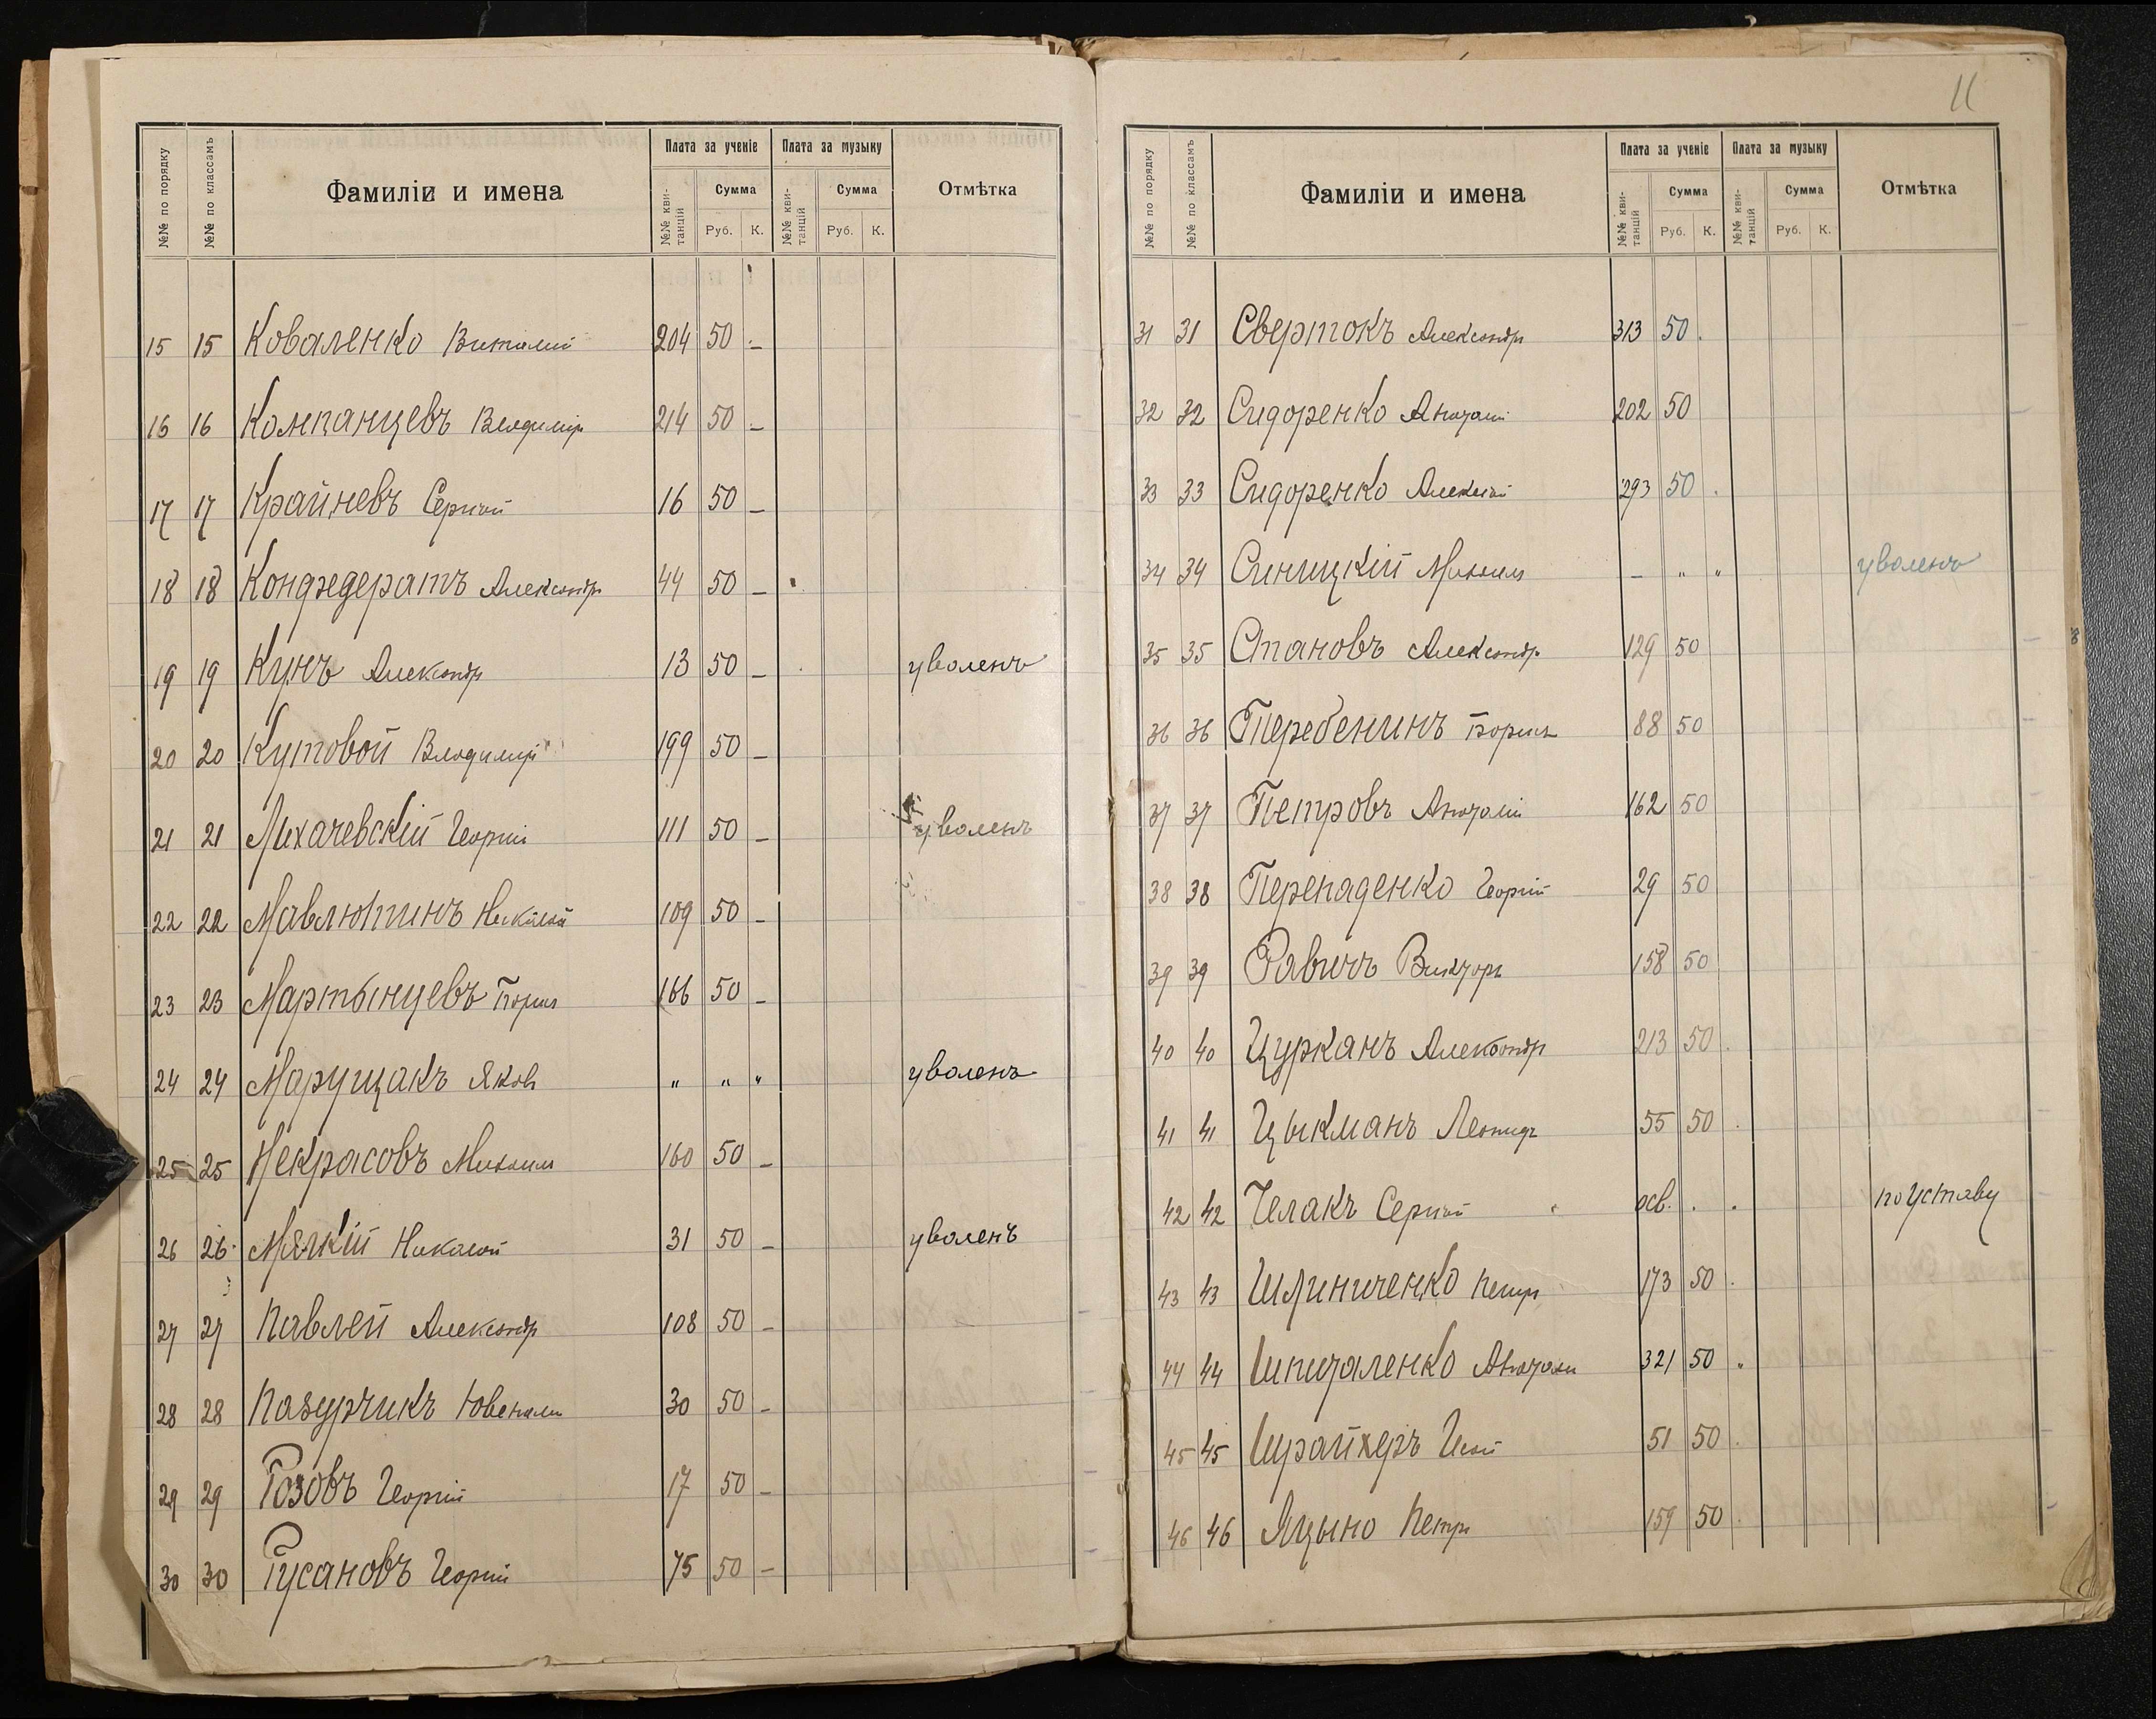 №№ по порядку №№ по классамъ Фамиліи и имена Плата за ученіе Плата за музыку Отмѣтка
№№ кви-танцій Сумма №№ кви-танцій Сумма
Руб. К. Руб. К.
15 15 Коваленко Виталій 204 50 –
16 16 Компанцевъ Владиміръ 214 50 –
17 17 Крайневъ Сергѣй 16 50 –
18 18 Конфедератъ Александръ 44 50 –
19 19 Кунъ Александръ 13 50 – уволенъ
20 20 Кутовой Владиміръ 199 50 –
21 21 Лихачевскій Георгій 111 50 – уволенъ
22 22 Мавлютинъ Николай 109 50 –
23 23 Мартынцевъ Борисъ 166 50 –
24 24 Марущакъ Яковъ " " " уволенъ
25 25 Некрасовъ Михаилъ 160 50 –
26 26 Мягкій Николай 31 50 – уволенъ
27 27 Павлей Александръ 108 50 –
28 28 Пазурчикъ Ювеналій 30 50 –
29 29 Розовъ Георгій 17 50 –
30 30 Русановъ Георгій 75 50 –
11
№№ по порядку №№ по классамъ Фамиліи и имена Плата за ученіе Плата за музыку Отмѣтка
№№ кви-танцій Сумма №№ кви-танцій Сумма
Руб. К. Руб. К.
31 31 Свертокъ Александръ 313 50 .
32 32 Сидоренко Анатолій 202 50
33 33 Сидоренко Алексѣй 293 50 .
34 34 Синицкій Михаилъ – " " уволенъ
35 35 Спановъ Александръ 129 50
36 36 Теребенинъ Борисъ 88 50
37 37 Петровъ Анатолій 162 50
38 38 Перепаденко Георгій 29 50
39 39 Равичъ Викторъ 158 50
40 40 Цурканъ Александръ 213 50 .
41 41 Цыкманъ Леонидъ 55 50 .
42 42 Челакъ Сергѣй осв. . . по уставу
43 43 Шлиниченко Петръ 173 50 .
44 44 Шпиталенко Анатолій 321 50 .
45 45 Шрайхеръ 51 50 .
46 46 Яцыно Петръ 159 50 .